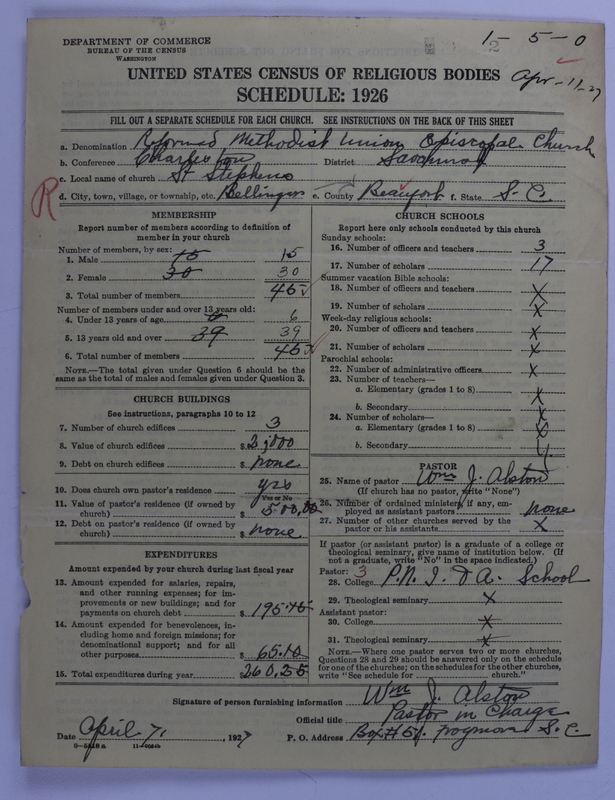 DEPARTMENT OF COMMERCE
BUREAU OF THE CENSUS
WASHINGTON
1 - 5 - 0
2
Apr - 11 - 27
UNITED STATES CENSUS OF RELIGIOUS BODIES
SCHEDULE: 1926
FILL OUT A SEPARATE SCHEDULE FOR EACH CHURCH. SEE INSTRUCTIONS ON THE BACK OF THIS SHEET
a. Denomination Reformed Methodist Union Episcopal Church
b. Conference Charleston District Savannah
c. Local name of church St Stephens
R
d. City, town, village, or township, etc. Bellinger e. County Beaufort f. State S. C.
MEMBERSHIP
Report number of members according to definition of
member in your church
Number of members, by sex:
1. Male 15 15
2. Female 30 30
3. Total number of members 45
Number of members under and over 13 years old:
4. Under 13 years of age 6 6
5. 13 years old and over 39 39
6. Total number of members 45
NOTE.—The total given under Question 6 should be
same as the total of males and females given under Question 3.
CHURCH BUILDINGS
See instructions, paragraphs 10 to 12
7. Number of church edifices 3
8. Value of church edifices $ 2,000
9. Debt on church edifices $ none
10. Does church own pastor's residence yes
Yes or No
11. Value of pastor's residence (if owned by
church) $ 500,00
12. Debt on pastor's residence (if owned by
church) $ none
EXPENDITURES
Amount expended by your church during last fiscal year
13. Amount expended for salaries, repairs,
and other running expenses; for im-
provements or new buildings; and for
payments on church debt $ 195.15
14. Amount expended for benevolences, in-
cluding home and foreign missions; for
denominational support; and for all
other purposes $ 65.10
15. Total expenditures during year $ 260.25
CHURCH SCHOOLS
Report here only schools conducted by this church
Sunday schools:
16. Number of officers and teachers 3
17. Number of scholars 17
Summer vacation Bible schools:
18. Number of officers and teachers X
19. Number of scholars X
Week-day religious schools:
20. Number of officers and teachers X
21. Number of scholars X
Parochial schools:
22. Number of administrative officers X
23. Number of teachers—
a. Elementary (grades 1 to 8) X
b. Secondary X
24. Number of scholars—
a. Elementary (grades 1 to 8) X
b. Secondary
PASTOR
25. Name of pastor Wm J. Alston
(If church has no pastor, write "None")
26. Number of ordained ministers, if any, em-
ployed as assistant pastors none
27. Number of other churches served by the
pastor or his assistants X
If pastor (or assistant pastor) is a graduate of a college or
theological seminary, give name of institution below. (If
not a graduate, write "No" in the space indicated.)
Pastor: 3
28. College P.N. I. & A. School
29. Theological seminary X
Assistant pastor:
30. College X
31. Theological seminary X
NOTE.—Where one pastor serves two or more churches,
Questions 28 and 29 should be answered only on the schedule
for one of the churches; on the schedules for the other churches,
write "See schedule for church."
Signature of person furnishing information Wm J. Alston
Official title Pastor in Charge
Date April 7, 1927 P. O. Address Box # 51, S. C.